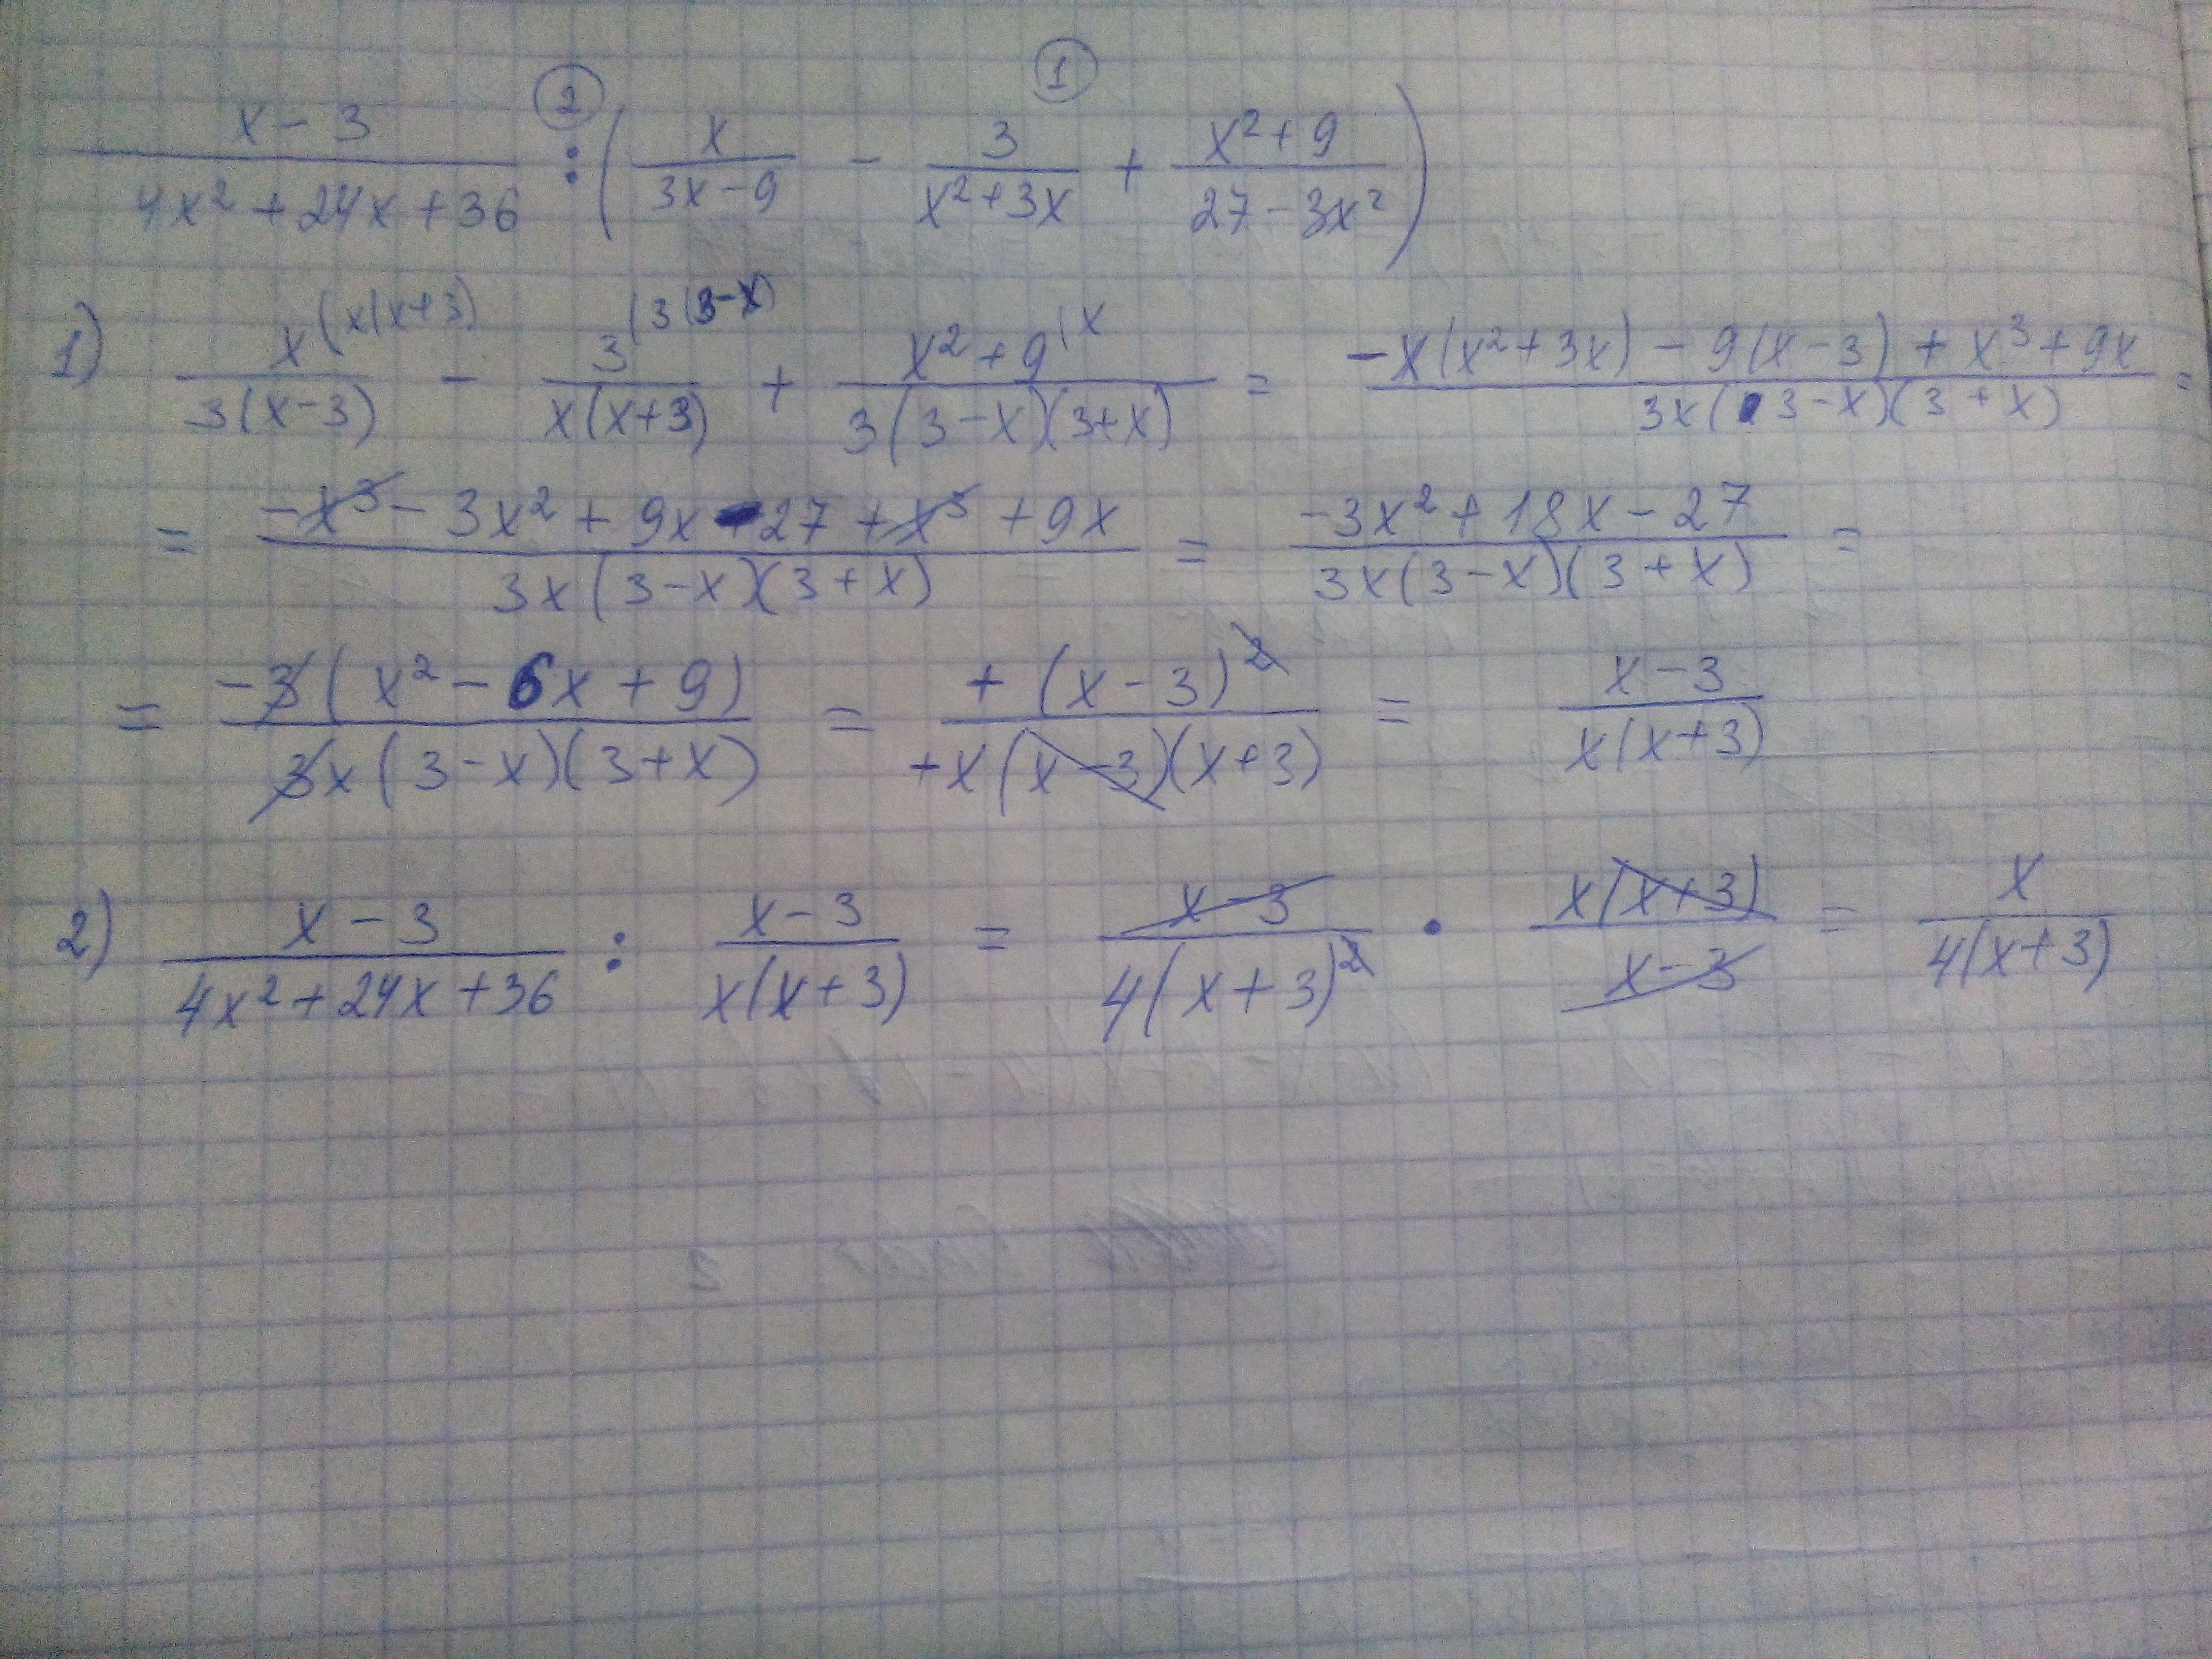 ② ①
(x-3)/(4x²+24x+36) : (x/(3x-9) - 3/(x²+3x) + (x²+9)/(27-3x²))
1) x^(x(x+3)/(3(x-3)) - 3^(3(3-x)/(x(x+3)) + x²+9^(x/(3(3-x)(3+x)) = (-x(x²+3x) - 9(x-3) + x³+9x)/(3x(3-x)(3+x)) =
= (-x³ - 3x² + 9x - 27 + x³ + 9x)/(3x(3-x)(3+x)) = (-3x²+18x-27)/(3x(3-x)(3+x)) =
= -3(x²-6x+9)/(3x(3-x)(3+x)) = +(x-3)²/(+x(x-3)(x+3)) = (x-3)/(x(x+3))
2) (x-3)/(4x²+24x+36) : (x-3)/(x(x+3)) = (x-3)/(4(x+3)²) · x(x+3)/(x-3) = x/(4(x+3))